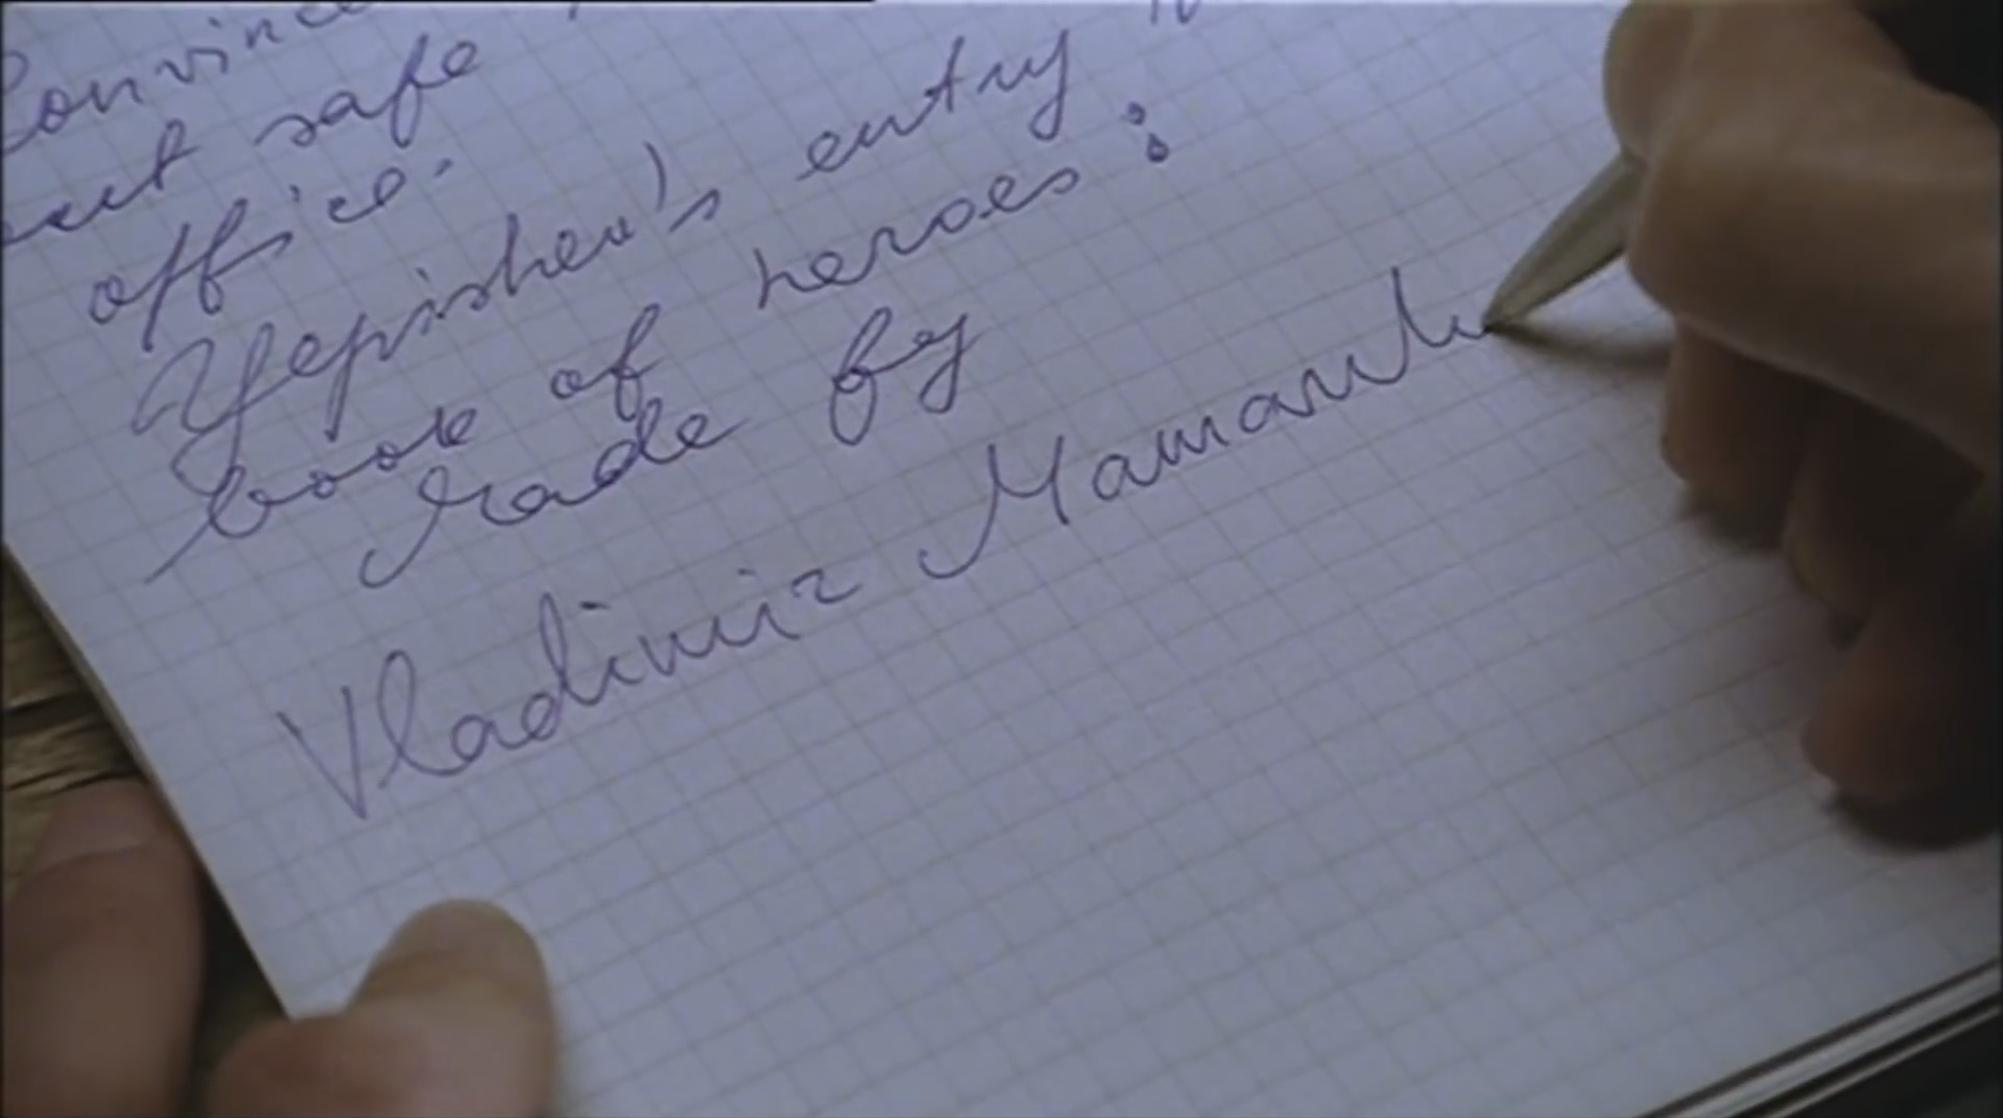 Convince
safe
office.
Yepishev's entry
book of heroes:
made by
Vladimir Mamaruk